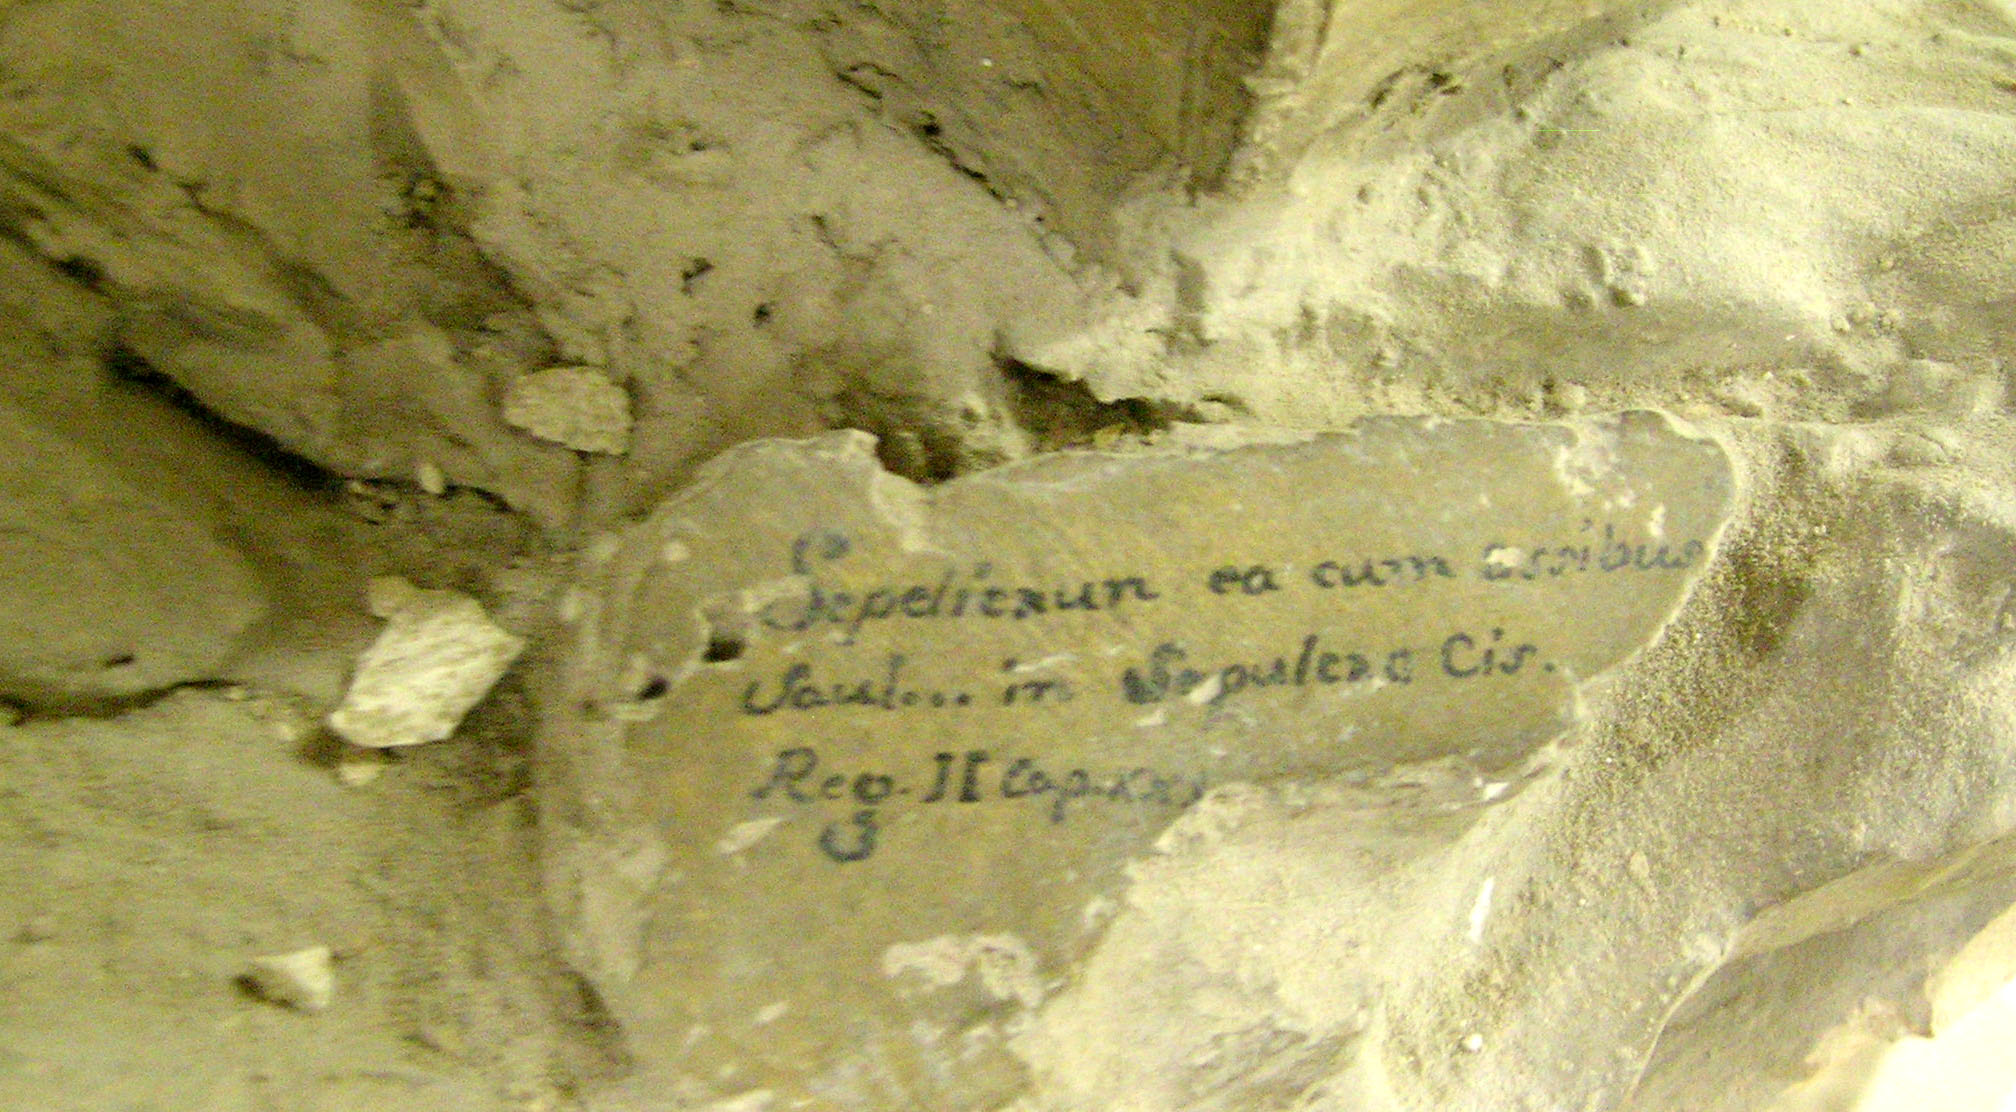 Sepelierun ea cum ossibus
Saul... in Sepulcre Cis.
Reg. II cap. xxi